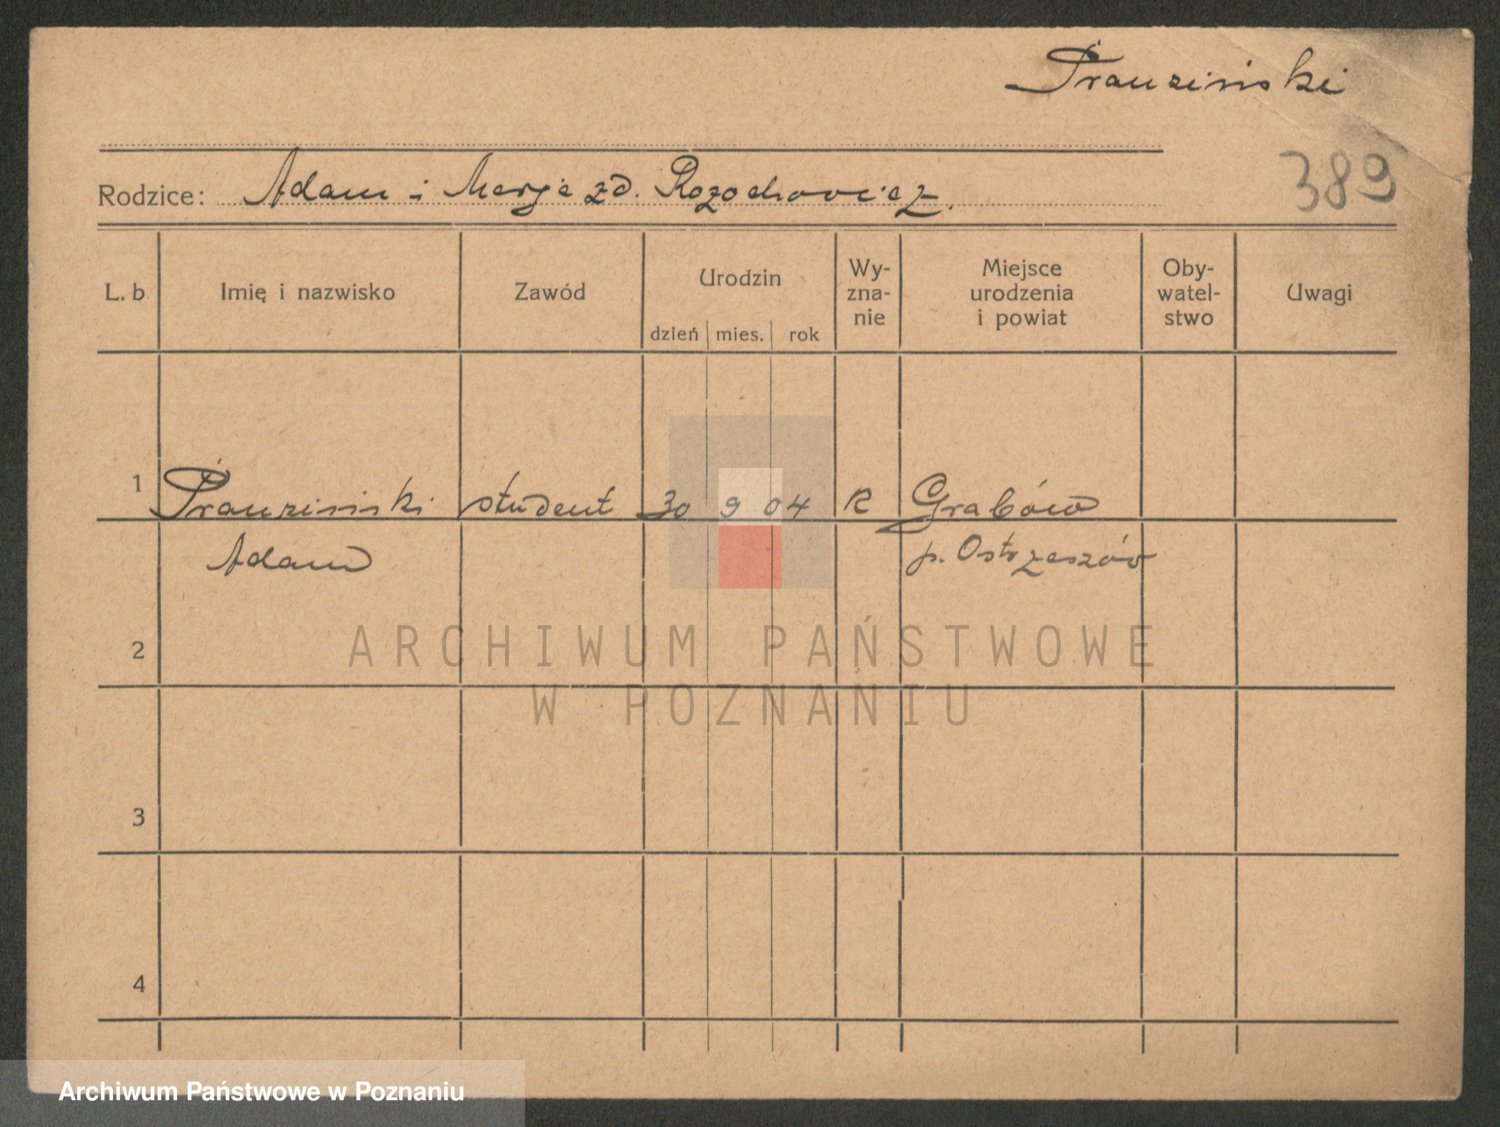 Pranziński
389
Rodzice: Adam i Marja zd. Rozochowicz.
L. b. Imię i nazwisko Zawód Urodzin dzień mies. rok Wy-zna-nie Miejsce urodzenia i powiat Oby-watel-stwo Uwagi
1 Pranziński student 30 9 04 R Grabów
Adam p. Ostrzeszów
2
3
4
ARCHIWUM PAŃSTWOWE
W POZNANIU
Archiwum Państwowe w Poznaniu